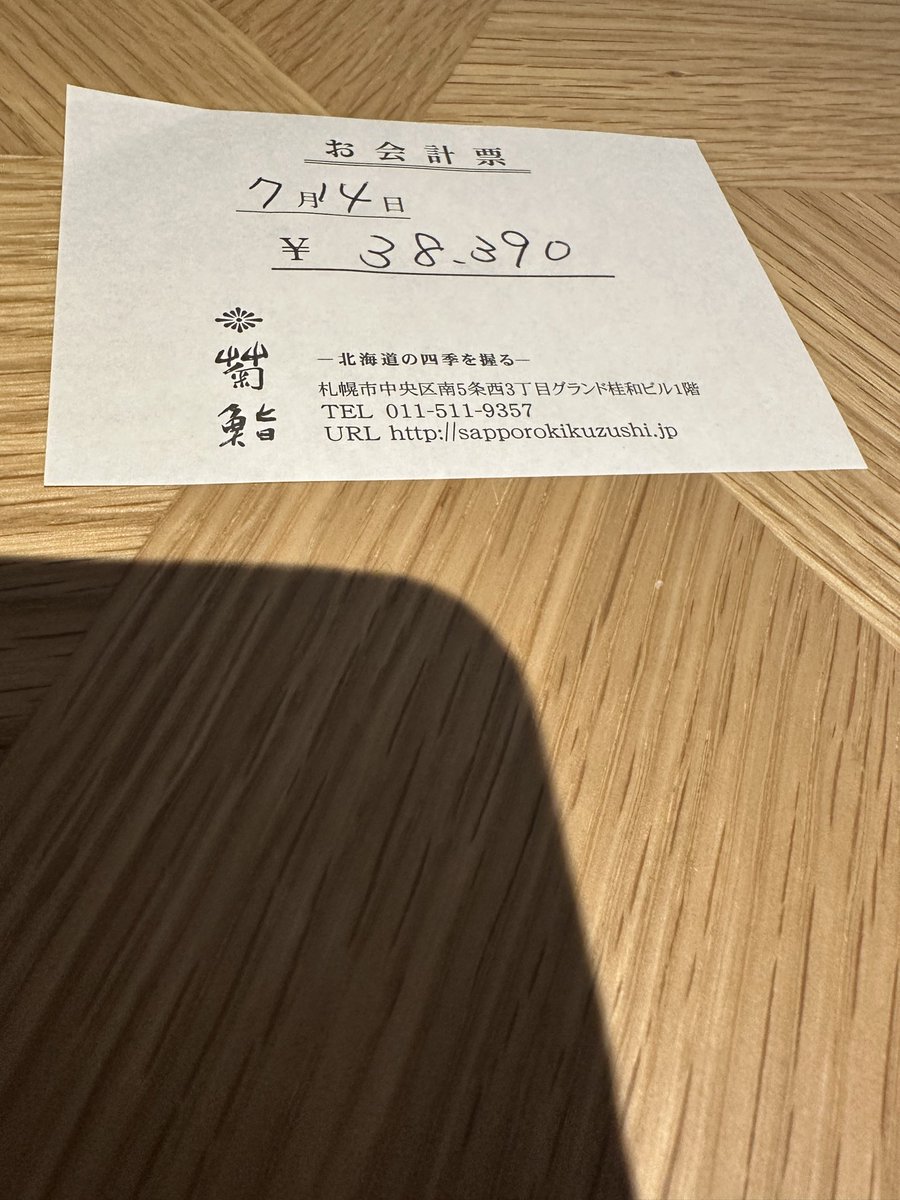 お会計票
7月14日
¥ 38.390
菊鮨
―北海道の四季を握る―
札幌市中央区南5条西3丁目グランド桂和ビル1階
TEL 011-511-9357
URL http://sapporokikuzushi.jp